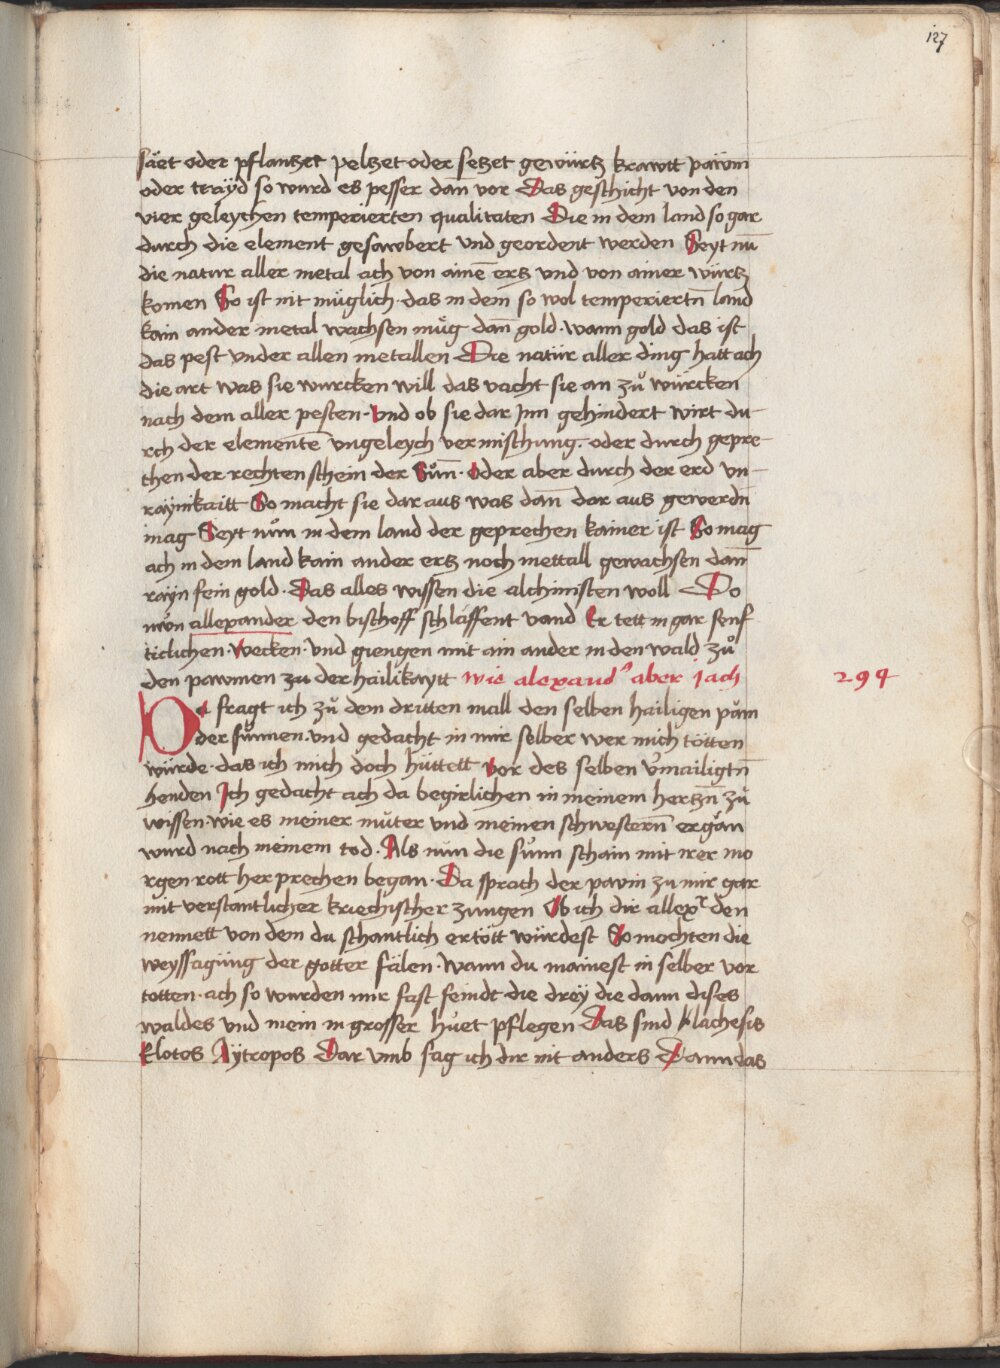 127
säet oder pflantzet peltzet oder setzet gewürtz krawtt päwm
oder träyd so wurd es pesser dan̄ vor Das geschicht von den
vier geleychen temperierten qualitaten Die in dem land so gar
durch die element gesawbert vnd geordent werden Seyt nū
die natur aller metal ach von ainē ertz vnd von ainer würtz
komen So ist nit müglich · das in dem so wol temperiertn̄ land
kain ander metal wachsen müg dan̄ gold · wann gold das ist
das pest vnder allen metallen Die natür aller ding hatt ach
die art was sie wurcken will das vacht sie an zů würcken
nach dem aller pesten · Vnd ob sie dar Jnn gehindert wirt du-
rch der elementē vngeleych vermischung · oder durch gepre-
chen der rechten schein der Sůn̄ · Oder aber durch der erd vn-
räynikaitt So macht sie dar aus was dan̄ dar aus gewerdn̄
mag Seyt nům in dem land der geprechen kainer ist So mag
ach in dem land kain ander ertz noch mettall gewachsen dan̄
räyn fein gold · Das alles wissen die alchimisten woll Do
nŵn allexander den bischoff schlaffent vand Er tett in gar senf
ticlichen · Wecken · vnd giengen mit ain ander in den wald zů
den pawmen zu der hailikaytt wie alexandˀ aber sach
294
Da fragt ich zů dem dritten mall den selben hailigen påm
der sůnnen · vnd gedacht in mir selber wer mich tötten
würde · das ich mich doch hüttett Vor des selben v̄mailigtn̄
henden Ich gedacht ach da begirlichen in meinem hertzn̄ zů
wissen · wie es meiner můter vnd meinen schwestern̄ ergån
wurd nach meinem tod · Als nůn die sůnn schain mit irer mo
rgen rott her prechen began · Da sprach der pavm zu mir gar
mit verstantlicher kriechischer zungen Ob ich dir allexr den
nennett von dem du schantlich ertött würdest So mochten die
weyssagüng der gotter fälen · Wann du mainest in selber vor
totten · ach so wurden mir fast feindt die drey die dann dises
waldes vnd mein in grosser hůet pflegen Das sind lachesis
Klotos Aÿtropos Dar vmb sag ich dir nit anders Dann das